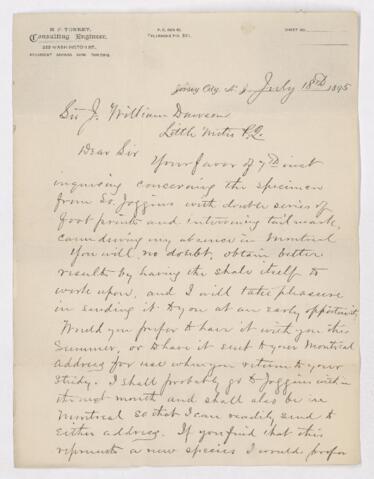 H. F. TORREY,
Consulting Engineer,
229 WASHINGTON ST.
PROVIDENT SAVINGS BANK BUILDING.
P. O. BOX 61.
TELEPHONE NO. 521.
SHEET NO.
Jersey City, N. J. July 18th 1895
Sir J. William Dawson
Little Metis P.Q.
Dear Sir
Your favor of 7th inst
inquiring concerning the specimen
from So. Joggins with double series of
foot prints and intervening tail mark,
came during my absence in Montreal
You will, no doubt, obtain better
results by having the shale itself to
work upon, and I will take pleasure
in sending it to you at an early opportunity.
Would you prefer to have it with you this
Summer, or to have it sent to your Montreal
Address for use when you return to your
study. I shall probably go to Joggins within
the next month and shall also be in
Montreal so that I can readily send to
either address. If you find that this
represents a new species I would prefer